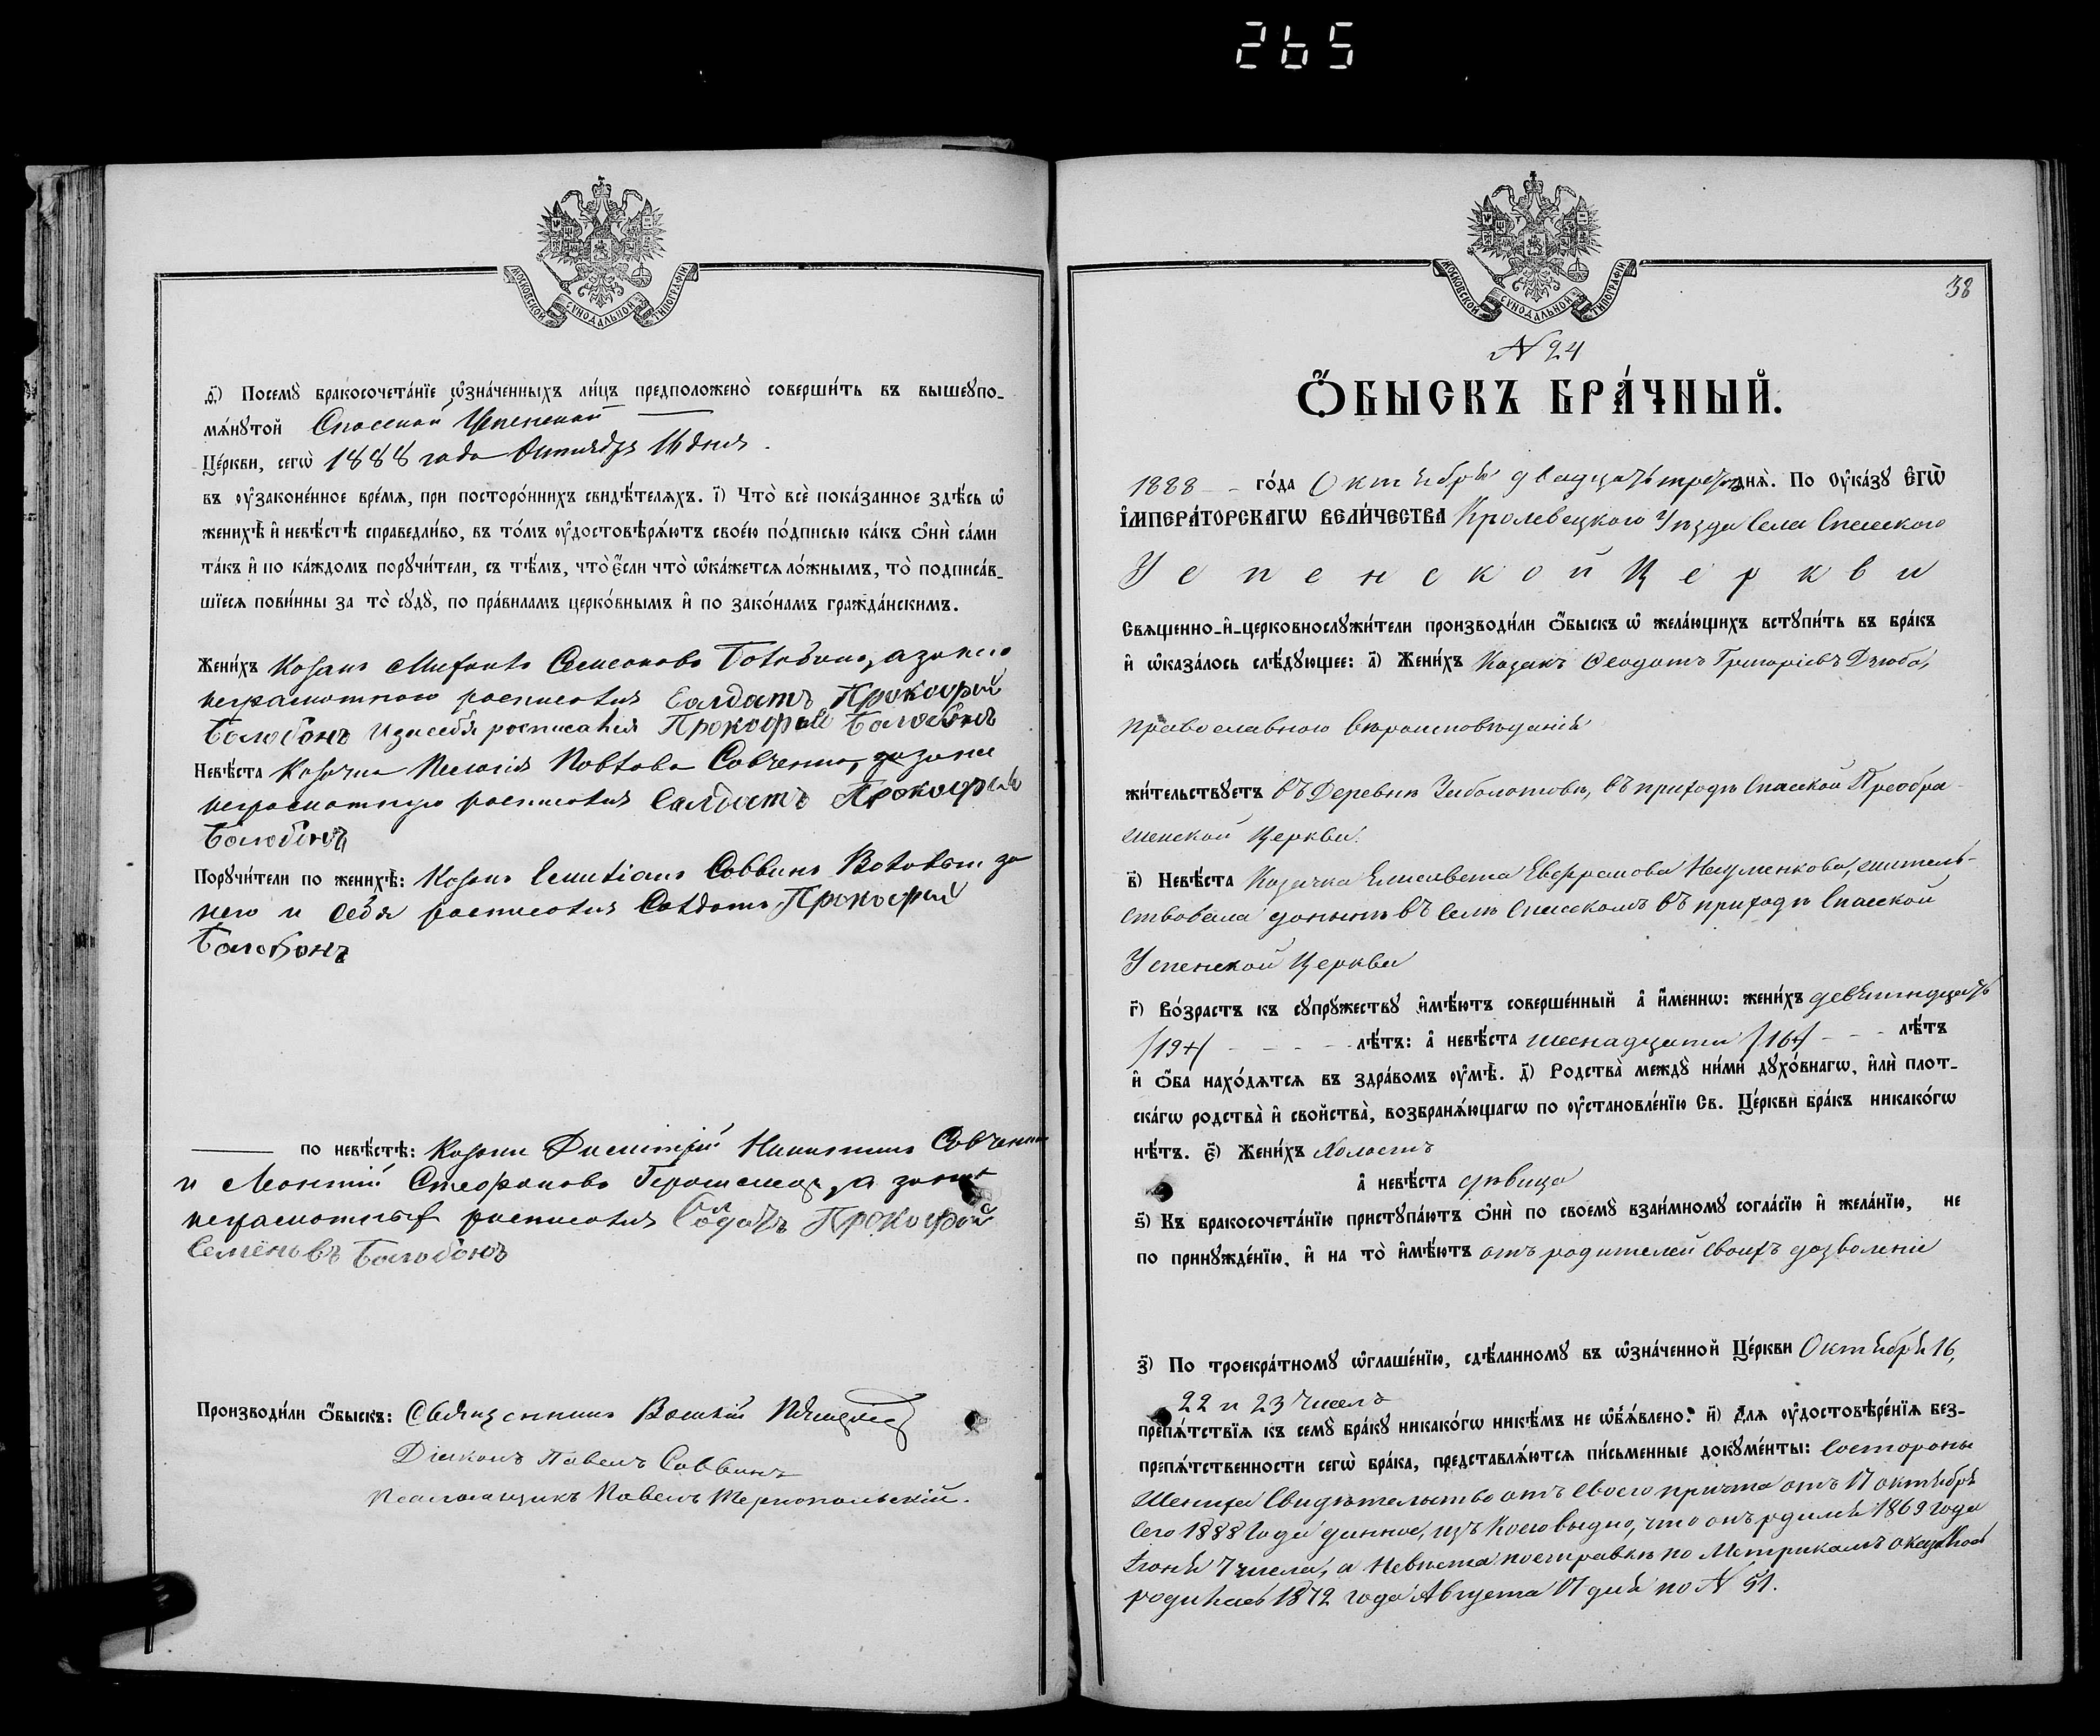 265
МОСКОВСКОЙ СѴНОДАЛЬНОЙ ТИПОГРАФІИ
д҃) Посемꙋ̀ бракосочета́нїе ѡ҆зна́ченныхъ ли́цъ предположено̀ соверши́ть въ вышеꙋпо-
мѧ́нꙋтой Спасской Успенской
Це́ркви, сегѡ̀ 1888 года Октября 16 дня.
въ ᲂу҆зако́нѐнное вре́мѧ, при посторо́ннихъ свидѣ́телѧхъ. і҃) Что̀ всѐ пока́занное здѣ́сь ѡ҆
женихѣ̀ и҆ невѣ́стѣ справедли́во, въ то́мъ ᲂу҆достовѣрѧ́ютъ свое́ю по́дписью ка́къ ѻ҆нѝ са́ми
та́къ и҆ по ка́ждомъ порꙋчи́тели, съ тѣ́мъ, что̀ є҆́сли что̀ ѡ҆ка́жетсѧ ло́жнымъ, то̀ подписа́в-
шїесѧ пови́нны за то̀ сꙋдꙋ̀, по пра́виламъ церко́внымъ и҆ по зако́намъ гражда́нскимъ.
Жени́хъ Козакъ Семеоновъ а за него
неграмотного росписался Салдатъ Прокофий
Балобонъ и за себя росписался Прокофий Балобонъ
Невѣ́ста Козачка Пелагия Павлова Савченко, за нее
неграмотную росписался Салдатъ Прокофий
Балобонъ
Порꙋчи́тели по женихѣ̀: Козакъ Саввинъ за
него и себя росписался Салдатъ Прокофий
Балобонъ
по невѣ́стѣ: Козаки Димитрій Никитинъ Савченко
и Стефановъ а за них
неграмотных росписался Солдатъ Прокофий
Семёновъ Балобонъ
Производи́ли ѻ҆́быскъ: Священникъ Василій
Діаконъ Павелъ Саввинъ
Псаломщикъ Павелъ Тернопольскій.
МОСКОВСКОЙ СѴНОДАЛЬНОЙ ТИПОГРАФІИ
38
N 24
Ѻ҆́БЫСКЪ БРА́ЧНЫЙ.
1888 го́да Октября двадцать третья днѧ̀. По Оу҆ка́зꙋ Є҆гѡ̀
І҆мпера́торскагѡ Вели́чества Кролевецкого Уезда Села Спасского
Успенской Церкви
Свѧщенно-и҆-церковнослꙋжи́тели производи́ли ѻ҆́быскъ ѡ҆ жела́ющихъ встꙋпи́ть въ бра́къ
и҆ ѡ҆каза́лось слѣ́дꙋющее: а҃) Жени́хъ Козакъ Феодотъ Григоріевъ Дзюба,
православного вѣроисповѣданія
жи́тельствꙋетъ въ Деревнѣ Заболотовѣ, въ приходѣ Спасской Преобра-
женской Церкви.
в҃) Невѣ́ста Козачка Елисавета Евфремова Науменкова, житель-
ствовала донынѣ въ Селѣ Спасскомъ въ приходѣ Спасской
Успенской Церкви
г҃) Во́зрастъ къ сꙋпрꙋ́жествꙋ и҆мѣ́ютъ соверше́нный а҆ и҆́меннѡ: жени́хъ девятнадцать
/19+/ лѣ́тъ: а҆ невѣ́ста шеснадцати /16+/ лѣ́тъ
и҆ ѻ҆́ба нахо́дѧтсѧ въ здра́вомъ ᲂу҆мѣ̀. д҃) Родства̀ междꙋ̀ ни́ми дꙋхо́внагѡ, и҆лѝ плот-
ска́гѡ родства̀ и҆ свойства̀, возбранѧ́ющагѡ по ᲂу҆становле́нїю Св. Це́ркви бра́къ никако́гѡ
нѣ́тъ. є҃) Жени́хъ холостъ
а҆ невѣ́ста дѣвица
ѕ҃) Къ бракосочета́нїю пристꙋпа́ютъ ѻ҆нѝ по своемꙋ̀ взаи́мномꙋ согла́сїю и҆ жела́нїю, не
по принꙋжде́нїю, и҆ на то̀ и҆мѣ́ютъ отъ родителей своихъ дозволение
з҃) По троекра́тномꙋ ѡ҆глаше́нїю, сдѣ́ланномꙋ въ ѡ҆зна́ченной Це́ркви Октября 16,
22 и 23 чиселъ
препѧ́тствїѧ къ семꙋ̀ бра́кꙋ никако́гѡ никѣ́мъ не ѡ҆б̾ѧ́влено. и҃) Длѧ ᲂу҆достовѣре́нїѧ без-
препѧ́тственности сегѡ̀ бра́ка, представлѧ́ютсѧ пи́сьменные докꙋме́нты: Состороны
жениха Свидѣтельство отъ своего причта отъ 17 октября
сего 1888 года данное, изъ коего видно, что онъ родился 1869 года
Іюня 7 числа, а невѣста по справкѣ по Метрикамъ оказалось
родилась 1872 года Августа 17 дня по N 51.